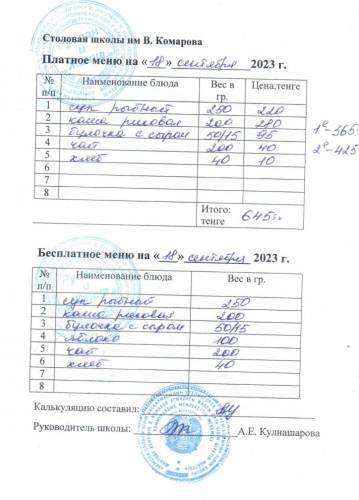 Столовая школы им В. Комарова
Платное меню на « 18 » сентября 2023 г.
№ п/п Наименование блюда Вес в гр. Цена,тенге
1 суп рыбный 250 220
2 каша рисовая 200 280
3 булочка с сыром 50/15 95
4 чай 200 40
5 хлеб 40 10
6
7
8
1е-365
2е-425
Итого: тенге 645тг
Бесплатное меню на « 18 » сентября 2023 г.
№ п/п Наименование блюда Вес в гр.
1 суп рыбный 250
2 каша рисовая 200
3 булочка с сыром 50/15
4 яблоко 100
5 чай 200
6 хлеб 40
7
8
Калькуляцию составил:
Руководитель школы: А.Е. Кулнашарова